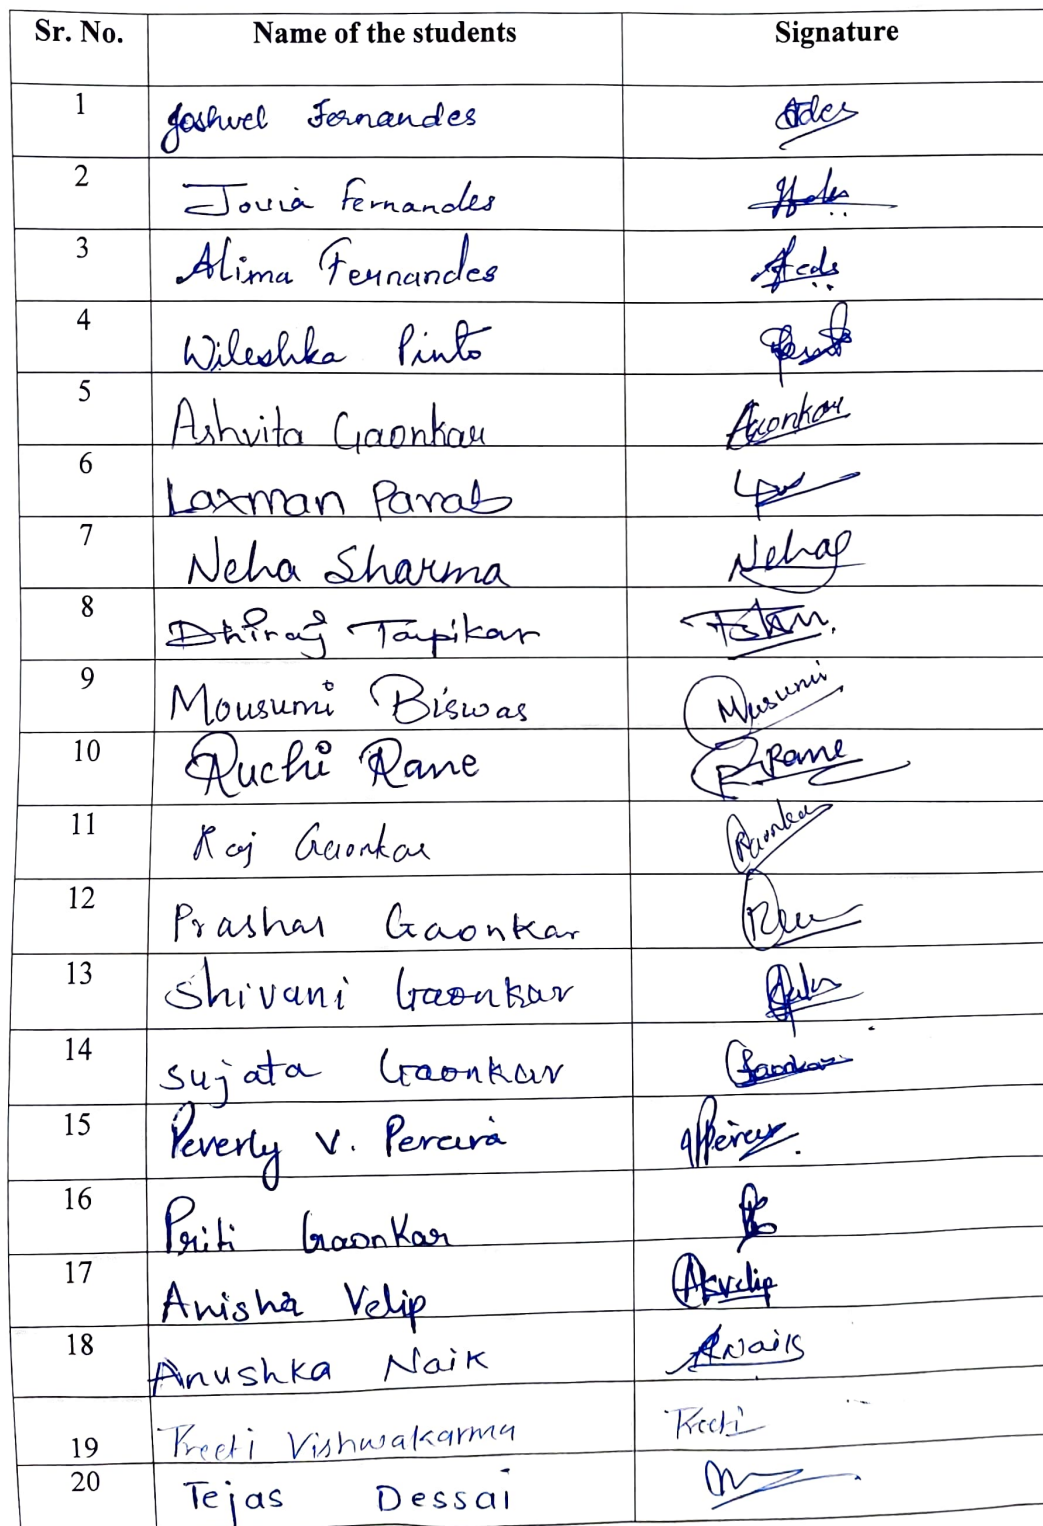 Sr. No. Name of the students Signature
1 Joshvel Fernandes
2 Jovia Fernandes
3 Alima Fernandes
4 Wileshka Pinto
5 Ashvita Gaonkar Gaonkar
6 Laxman Parab
7 Neha Sharma Neha
8 Dhiraj Taypikar
9 Mousumi Biswas Musumi
10 Ruchi Rane R. Rane
11 Raj Gaonkar Gaonkar
12 Prashar Gaonkar
13 Shivani Gaonkar
14 Sujata Gaonkar Gaonkar
15 Peverly V. Pereira
16 Priti Gaonkar
17 Anisha Velip Asvelip
18 Anushka Naik ANaik
19 Preeti Vishwakarma Preeti
20 Tejas Dessai